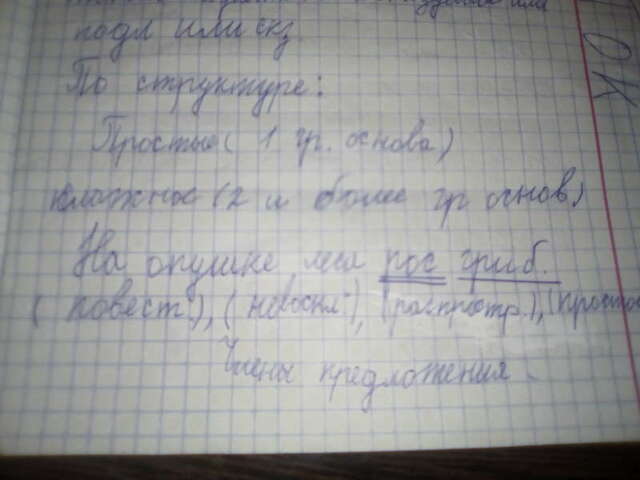 или
подл или скз.
По структуре:
Простые (1 гр. основа)
сложные (2 и более гр основ)
На опушке леса рос гриб.
(повест.), (невоскл.), (распростр.), (простое
Члены предложения